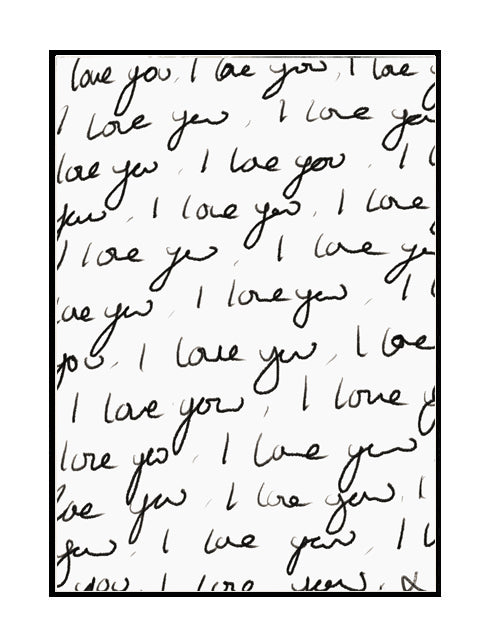 love you, I love you, I love y
I love you, I love you
love you, I love you, I l
you, I love you, I love
I love you, I love you
ove you, I love you, I l
you, I love you, I love
I love you, I love y
love you, I love you
love you, I love you, I
you, I love you, I l
you, I love you,